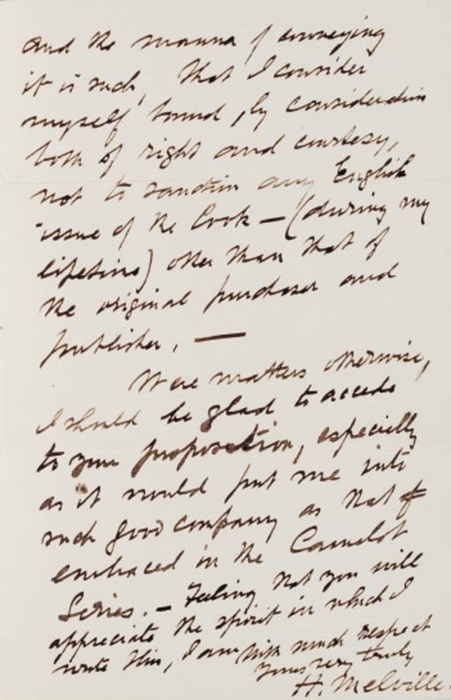 and the manner of conveying
it is such, that I consider
myself bound, by consideration
both of right and courtesy,
not to sanction any English
issue of the book — (during my
lifetime) other than that of
the original purchaser and
publisher. —
Were matters otherwise,
I should be glad to accede
to your proposition, especially
as it would put me into
such good company as that of
embraced in the Camelot
Series. — Feeling that you will
appreciate the spirit in which I
write this, I am with much respect
Yours very truly
H Melville.